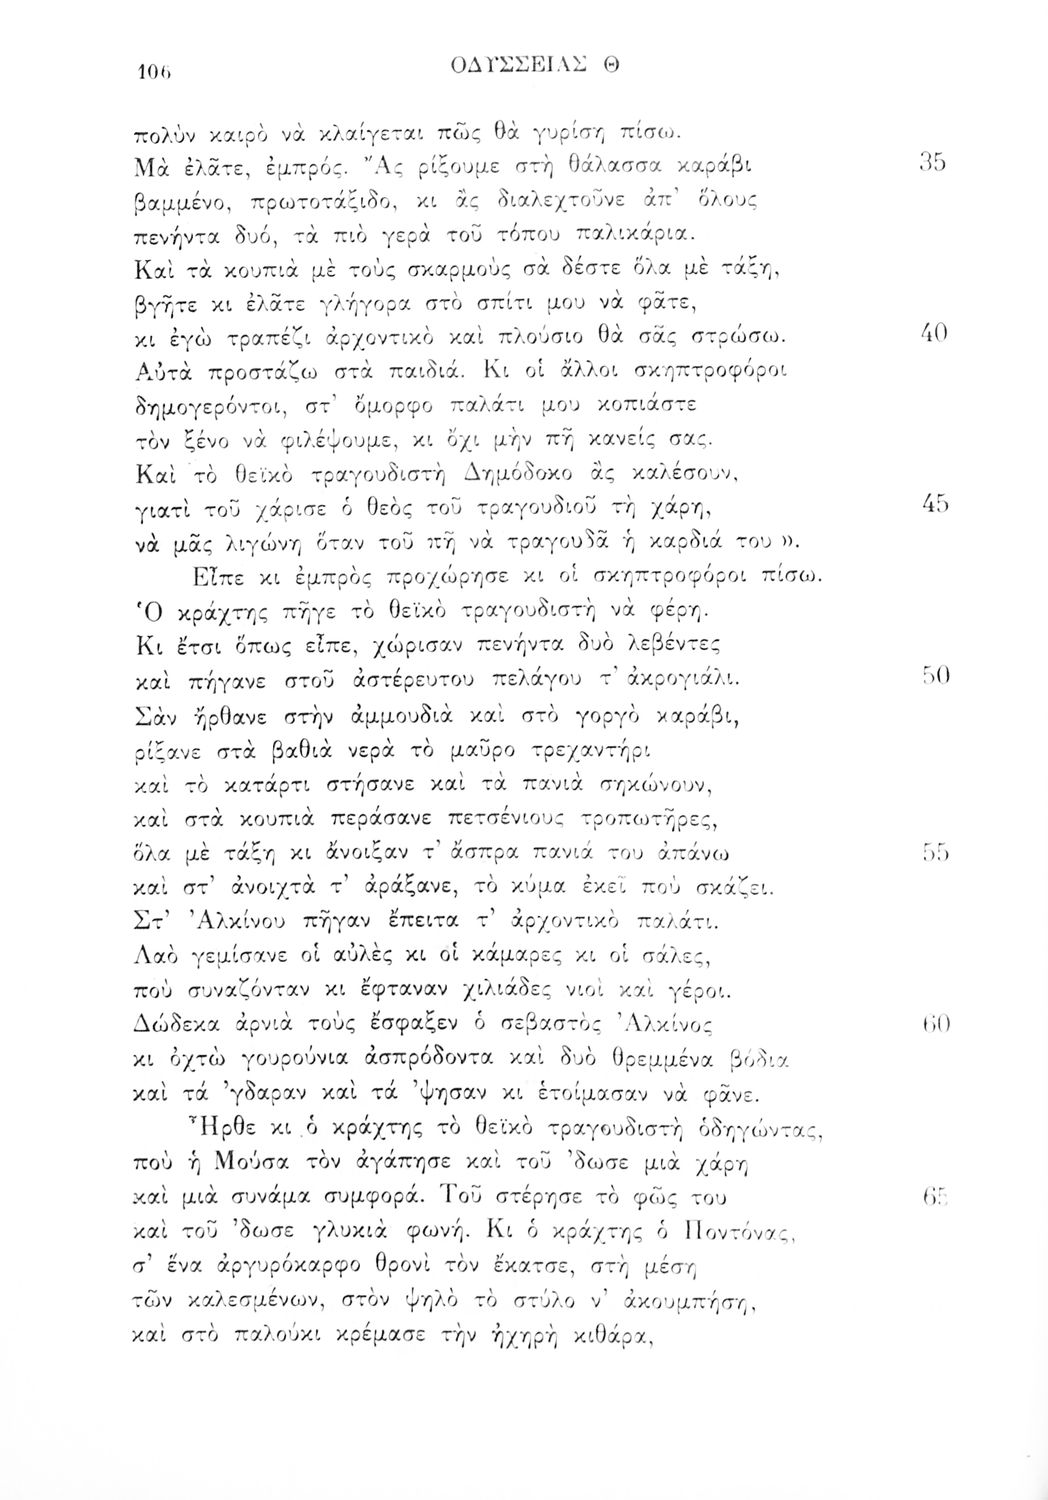 106 ΟΔΥΣΣΕΙΑΣ Θ
πολὺν καιρὸ νὰ κλαίγεται πῶς θὰ γυρίση πίσω.
Μὰ ἐλᾶτε, ἐμπρός. Ἂς ρίξουμε στὴ θάλασσα καράβι 35
βαμμένο, πρωτοτάξιδο, κι ἂς διαλεχτοῦνε ἀπ' ὅλους
πενήντα δυό, τὰ πιὸ γερὰ τοῦ τόπου παλικάρια.
Καὶ τὰ κουπιὰ μὲ τοὺς σκαρμοὺς σὰ δέστε ὅλα μὲ τάξη,
βγῆτε κι ἐλᾶτε γλήγορα στὸ σπίτι μου νὰ φᾶτε,
κι ἐγὼ τραπέζι ἀρχοντικὸ καὶ πλούσιο θὰ σᾶς στρώσω. 40
Αὐτὰ προστάζω στὰ παιδιά. Κι οἱ ἄλλοι σκηπτροφόροι
δημογερόντοι, στ' ὄμορφο παλάτι μου κοπιάστε
τὸν ξένο νὰ φιλέψουμε, κι ὄχι μὴν πῆ κανείς σας.
Καὶ τὸ θεϊκὸ τραγουδιστὴ Δημόδοκο ἂς καλέσουν,
γιατὶ τοῦ χάρισε ὁ θεὸς τοῦ τραγουδιοῦ τὴ χάρη, 45
νὰ μᾶς λιγώνη ὅταν τοῦ πῆ νὰ τραγουδᾶ ἡ καρδιά του ».
Εἶπε κι ἐμπρὸς προχώρησε κι οἱ σκηπτροφόροι πίσω.
Ὁ κράχτης πῆγε τὸ θεϊκὸ τραγουδιστὴ νὰ φέρη.
Κι ἔτσι ὅπως εἶπε, χώρισαν πενήντα δυὸ λεβέντες
καὶ πήγανε στοῦ ἀστέρευτου πελάγου τ' ἀκρογιάλι. 50
Σὰν ἤρθανε στὴν ἀμμουδιὰ καὶ στὸ γοργὸ καράβι,
ρίξανε στὰ βαθιὰ νερὰ τὸ μαῦρο τρεχαντήρι
καὶ τὸ κατάρτι στήσανε καὶ τὰ πανιὰ σηκώνουν,
καὶ στὰ κουπιὰ περάσανε πετσένιους τροπωτῆρες,
ὅλα μὲ τάξη κι ἄνοιξαν τ' ἄσπρα πανιά του ἀπάνω 55
καὶ στ' ἀνοιχτὰ τ' ἀράξανε, τὸ κύμα ἐκεῖ ποὺ σκάζει.
Στ' Ἀλκίνου πῆγαν ἔπειτα τ' ἀρχοντικὸ παλάτι.
Λαὸ γεμίσανε οἱ αὐλὲς κι οἱ κάμαρες κι οἱ σάλες,
ποὺ συναζόνταν κι ἔφταναν χιλιάδες νιοὶ καὶ γέροι.
Δώδεκα ἀρνιὰ τοὺς ἔσφαξεν ὁ σεβαστὸς Ἀλκίνος 60
κι ὀχτὼ γουρούνια ἀσπρόδοντα καὶ δυὸ θρεμμένα βόδια
καὶ τά 'γδαραν καὶ τά 'ψησαν κι ἑτοίμασαν νὰ φᾶνε.
Ἦρθε κι ὁ κράχτης τὸ θεϊκὸ τραγουδιστὴ ὁδηγώντας,
ποὺ ἡ Μούσα τὸν ἀγάπησε καὶ τοῦ 'δωσε μιὰ χάρη
καὶ μιὰ συνάμα συμφορά. Τοῦ στέρησε τὸ φῶς του 65
καὶ τοῦ 'δωσε γλυκιὰ φωνή. Κι ὁ κράχτης ὁ Ποντόνας,
σ' ἕνα ἀργυρόκαρφο θρονὶ τὸν ἔκατσε, στὴ μέση
τῶν καλεσμένων, στὸν ψηλὸ τὸ στύλο ν' ἀκουμπήση,
καὶ στὸ παλούκι κρέμασε τὴν ἠχηρὴ κιθάρα,